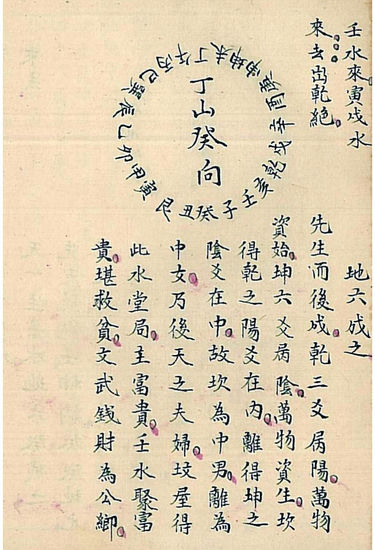 壬水來寅戌水
來去出乾絕
丁未坤申庚酉辛戌乾亥壬子癸丑艮寅甲卯乙辰巽巳丙午
丁山癸向
地六成之
先生而後成乾三爻属陽萬物
資始坤六爻属陰萬物資生坎
得乾之陽爻在內離得坤之
陰爻在中故坎為中男離為
中女乃後天之夫婦坟屋得
此水堂局主富貴壬水聚富
貴堪救貧文武錢財為公鄉